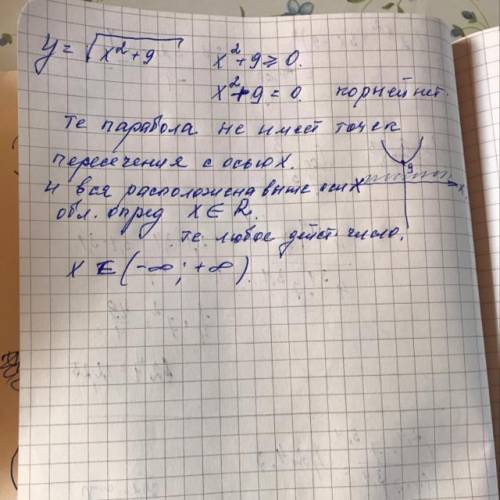 y = √x²+9   x²+9 ≥ 0.
x²+9 = 0. корней нет.
те парабола не имеет точек
пересечения с осью X.
и вся расположена выше оси X
9
x
обл. опред X ∈ R.
те любое дейст число.
X ∈ (-∞; +∞)